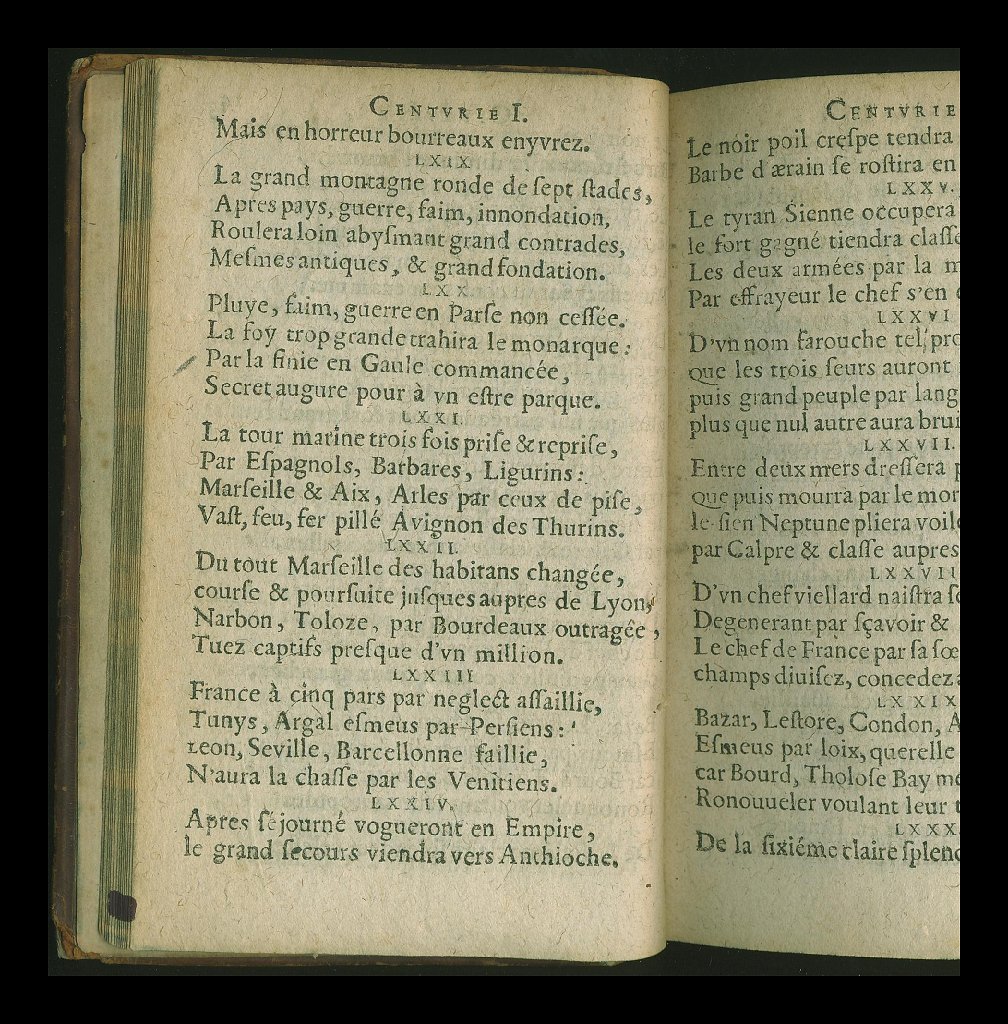 CENTVRIE I.
Mais en horreur bourreaux enyvrez.
LXIX
La grand montagne ronde de ſept ſtades,
Apres pays, guerre, faim, innondation,
Roulera loin abyſmant grand contrades,
Meſmes antiques, & grand fondation.
LXX
Pluye, faim, guerre en Parſe non ceſſée.
La foy trop grande trahira le monarque:
Par la finie en Gaule commancée,
Secret augure pour à vn eſtre parque.
LXXI.
La tour marine trois fois priſe & repriſe,
Par Eſpagnols, Barbares, Ligurins:
Marſeille & Aix, Arles par ceux de piſe,
Vaſt, feu, fer pillé Avignon des Thurins.
LXXII.
Du tout Marſeille des habitans changée,
courſe & pourſuite juſques aupres de Lyon,
Narbon, Toloze, par Bourdeaux outragée,
Tuez captifs preſque d'vn million.
LXXIII
France à cinq pars par neglect aſſaillie,
Tunys, Argal eſmeus par Perſiens:
Leon, Seville, Barcellonne faillie,
N'aura la chaſſe par les Venitiens.
LXXIV.
Apres ſéjourné vogueront en Empire,
le grand ſecours viendra vers Anthioche.
CENTVRIE
Le noir poil creſpe tendra
Barbe d'ærain ſe roſtira en
LXXV.
Le tyran Sienne occupera
le fort gagné tiendra claſſe
Les deux armées par la m
Par effrayeur le chef s'en
LXXVI
D'vn nom farouche tel pro
que les trois ſeurs auront
puis grand peuple par lang
plus que nul autre aura brui
LXXVII.
Entre deux mers dreſſera p
que puis mourra par le mor
le ſien Neptune pliera voile
par Calpre & claſſe aupres
LXXVII
D'vn chef viellard naiſtra ſo
Degenerant par ſçavoir &
Le chef de France par ſa ſœ
champs diuiſez, concedez a
LXXIX
Bazar, Leſtore, Condon, A
Eſmeus par loix, querelle
car Bourd, Tholoſe Bay me
Ronouueler voulant leur t
LXXX.
De la ſixiéme claire ſplend